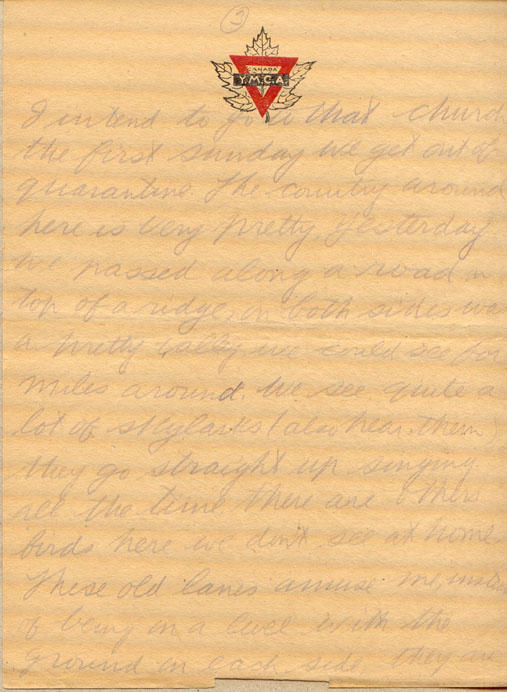 3
CANADA
Y.M.C.A
I intend to go to that church
the first sunday we get out of
quarantine. The country around
here is very pretty. Yesterday
we passed along a road on
top of a ridge, on both sides was
a pretty valley, we could see for
miles around. We see quite a
lot of skylarks (also hear them)
they go straight up singing
all the time there are others
birds here we don't see at home.
These old lanes amuse me, instead
of being on a level with the
ground on each side they are